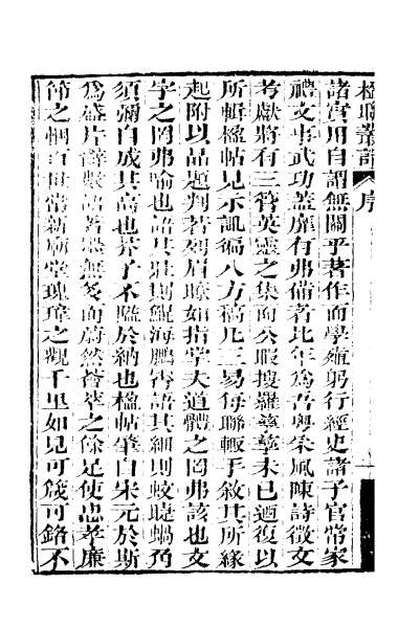 楹聯叢話 序
諸實用自謂無關乎著作而學殖躬行經史諸子官常家
禮文事武功蓋靡有弗備者比年為吾粵采風陳詩徵文
考獻將有三管英靈之集而公暇搜羅孳孳未已迺復以
所輯楹帖見示諏徧八方稿凡三易每聯輒手敘其所緣
起附以品題判若列眉瞭如指掌大道體之罔弗該也文
字之罔弗喻也語其壯則鯤海鵬霄語其細則蚊睫蝸角
須彌自成其高也芥子不隘於納也楹帖肇自宋元於斯
為盛片辭數語著墨無多而蔚然薈萃之餘足使忠孝廉
節之悃百世常新廟堂瑰瑋之觀千里如見可箴可銘不